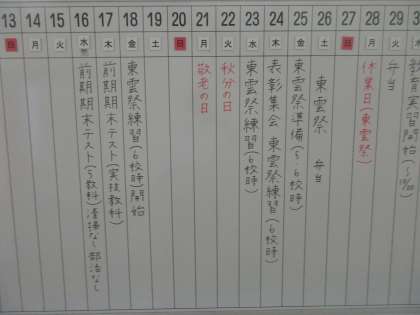 13 日
14 月
15 火
16 水 前期期末テスト(5教科)清掃なし 部活なし
17 木 前期期末テスト(実技教科)
18 金 東雲祭練習(6校時)開始
19 土
20 日
21 月 敬老の日
22 火 秋分の日
23 水 東雲祭練習(6校時)
24 木 表彰集会 東雲祭練習(6校時)
25 金 東雲祭準備(5・6校時)
26 土 東雲祭 弁当
27 日
28 月 休業日(東雲祭)
29 火 弁当
教育実習開始